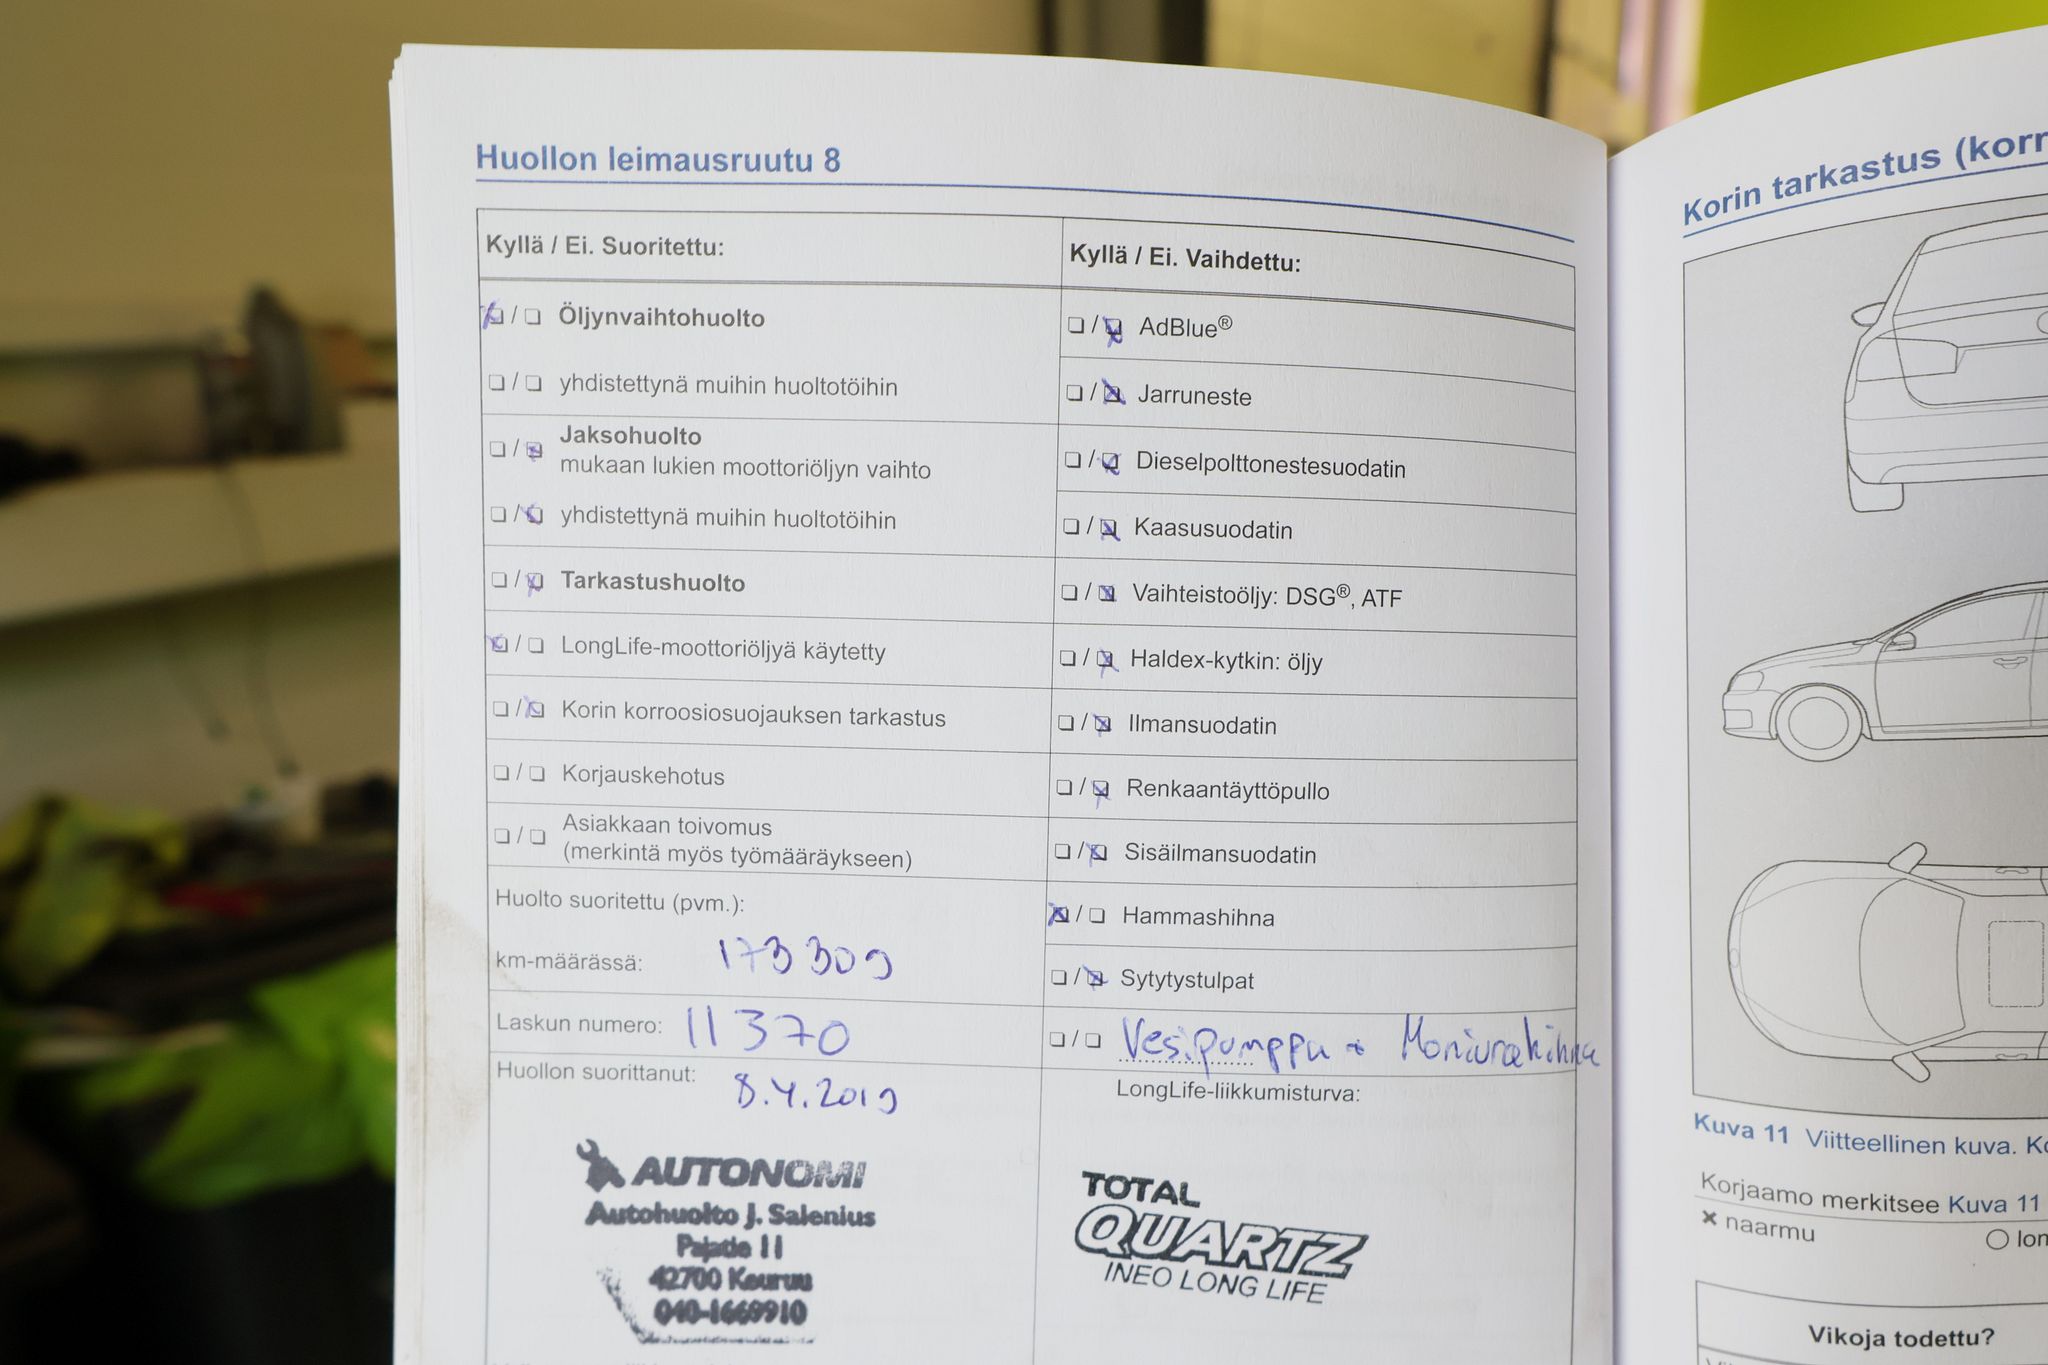 Huollon leimausruutu 8
Kyllä / Ei. Suoritettu:
/ Öljynvaihtohuolto
/ yhdistettynä muihin huoltotöihin
/ Jaksohuolto
mukaan lukien moottoriöljyn vaihto
/ yhdistettynä muihin huoltotöihin
/ Tarkastushuolto
/ LongLife-moottoriöljyä käytetty
/ Korin korroosiosuojauksen tarkastus
/ Korjauskehotus
/ Asiakkaan toivomus
(merkintä myös työmääräykseen)
Huolto suoritettu (pvm.):
km-määrässä: 173309
Laskun numero: 11370
Huollon suorittanut: 8.4.2019
AUTONOMI
Autohuolto J. Salenius
Pajatie 11
42700 Keuruu
Kyllä / Ei. Vaihdettu:
/ AdBlue®
/ Jarruneste
/ Dieselpolttonestesuodatin
/ Kaasusuodatin
/ Vaihteistoöljy: DSG®, ATF
/ Haldex-kytkin: öljy
/ Ilmansuodatin
/ Renkaantäyttöpullo
/ Sisäilmansuodatin
/ Hammashihna
/ Sytytystulpat
/ Vesipumppu + Moniurahihna
LongLife-liikkumisturva:
TOTAL
QUARTZ
INEO LONG LIFE
Korin tarkastus (korr
Kuva 11 Viitteellinen kuva. Ko
Korjaamo merkitsee Kuva 11
× naarmu
Vikoja todettu?